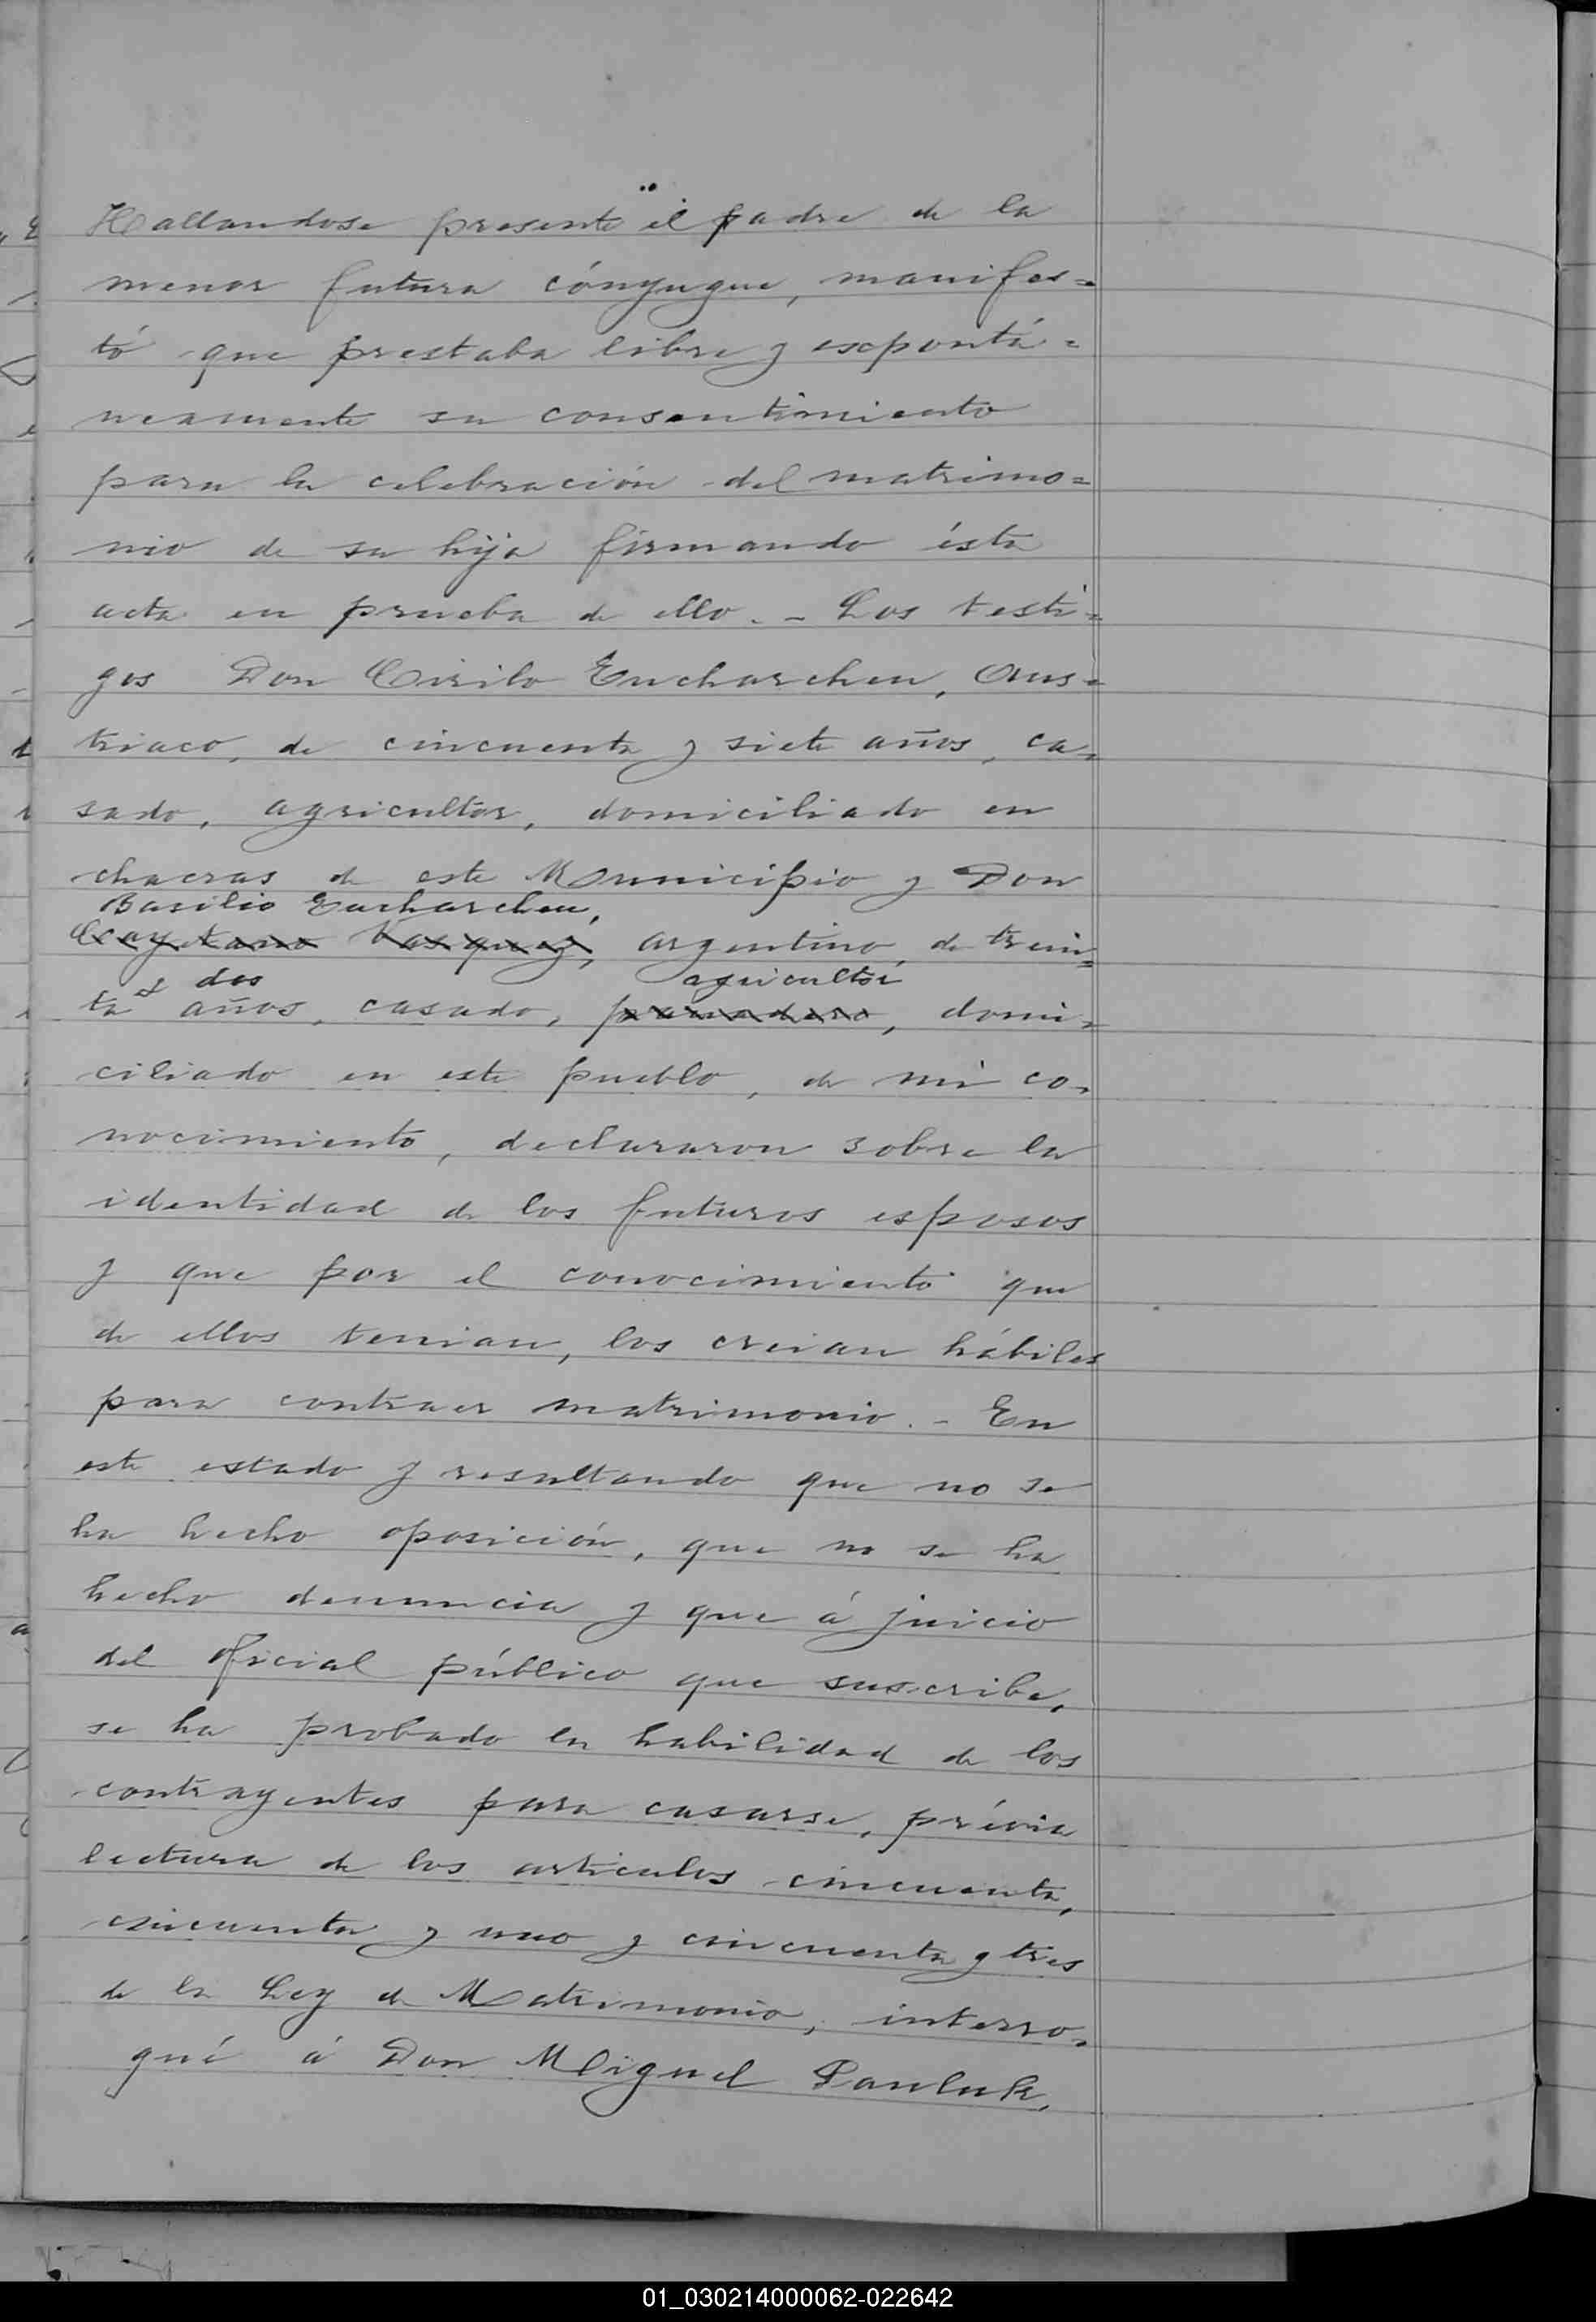 Hallandose presente el padre de la
menor futura cónyugue, manifes=
tó que prestaba libre y espontá=
neamente su consentimiento
para la celebración del matrimo=
nio de su hija firmando ésta
acta en prueba de ello. - Los testi=
gos Don Cirilo Eucharchen, Aus=
triaco, de cincuenta y siete años, ca=
sado, agricultor, domiciliado en
chacras de este Municipio y Don
Basilio Eucharchen,
Cayetano Vasquez, argentino, de trein=
y dos agricultor
ta años, casado, panadero, domi=
ciliado en este pueblo, de mi co=
nocimiento, declararon sobre la
identidad de los futuros esposos
y que por el conocimiento que
de ellos tenian, los creian hábiles
para contraer matrimonio. - En
este estado y resultando que no se
ha hecho oposición, que no se ha
hecho denuncia y que á juicio
del oficial público que suscribe,
se ha probado la habilidad de los
contrayentes para casarse, prévia
lectura de los articulos cincuenta,
cincuenta y uno y cincuenta y tres
de la Ley de Matrimonio, interro=
gué á Don Miguel Pauluk,
01_030214000062-022642